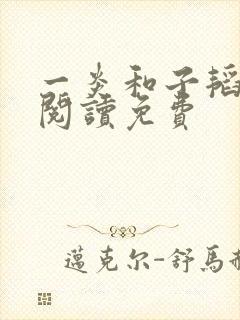 一炎和子韬
閱讀免費
邁克尔-舒馬赫